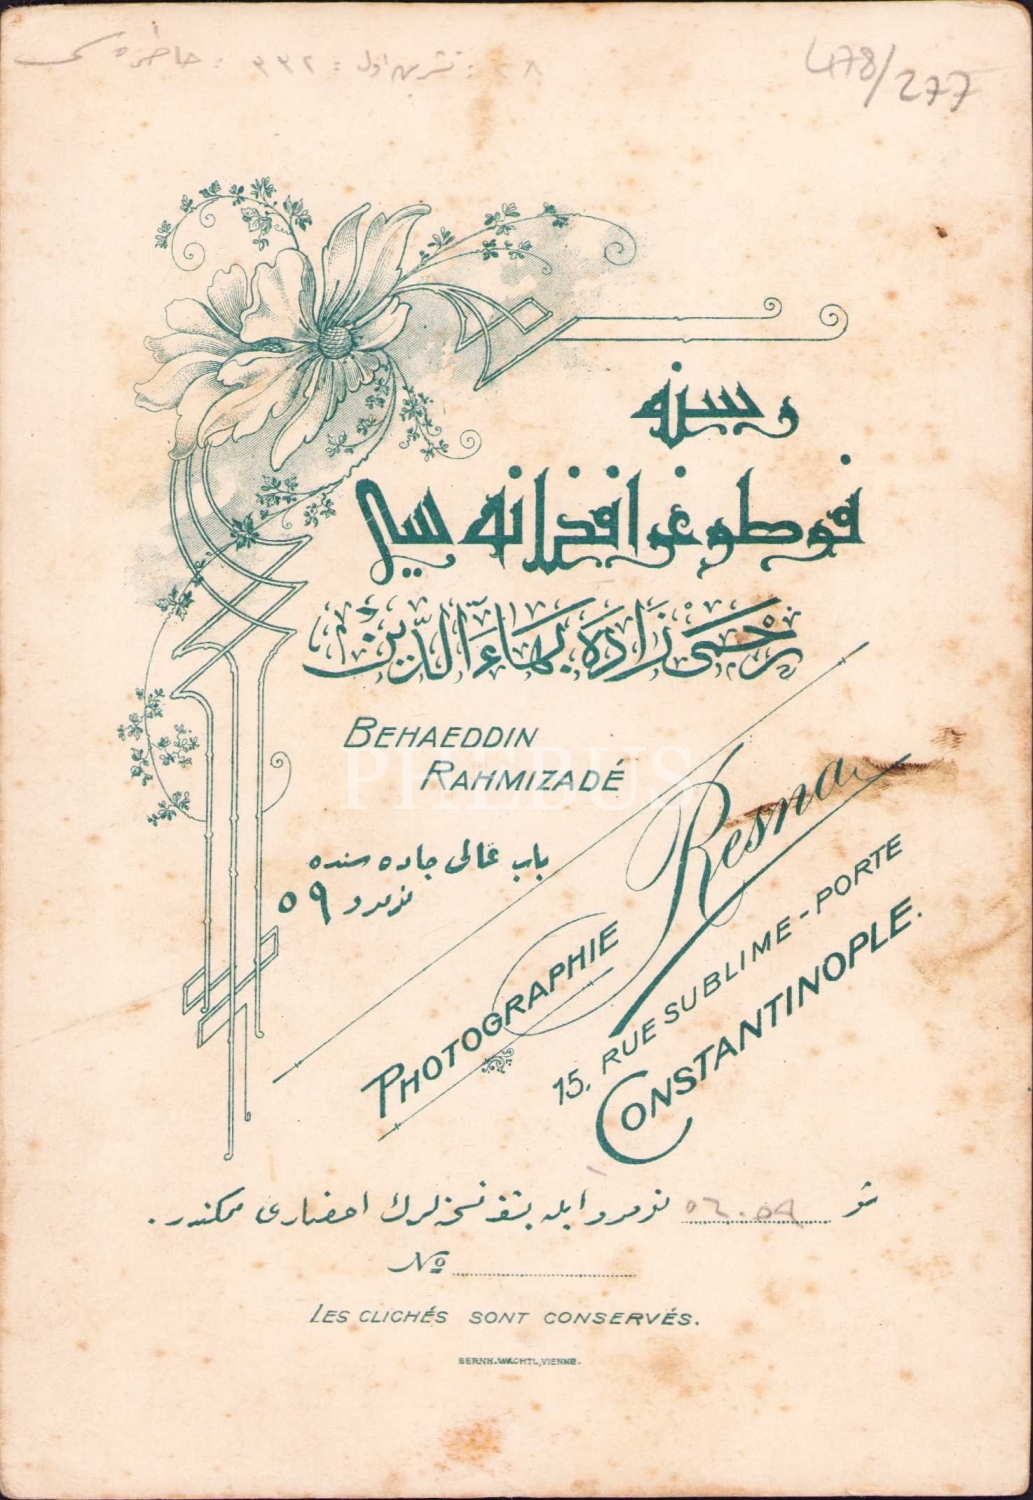 478/277
رسنه
فوطوغرافخانه سی
رحمی زاده بهاء الدین
BEHAEDDIN
RAHMIZADÉ
PHEBUS
باب عالی جاده سنده
نومرو ٥٩
PHOTOGRAPHIE Resna
15, RUE SUBLIME-PORTE
CONSTANTINOPLE.
شو نومرو ايله بشقه نسخه لرك احضاری ممكندر.
No
LES CLICHÉS SONT CONSERVÉS.
BERNH. WACHTL, VIENNE.